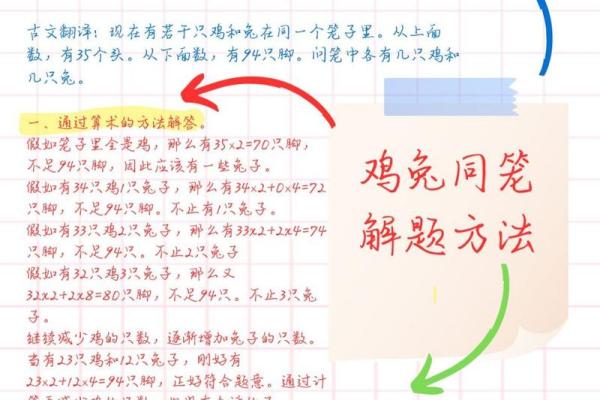 古文翻译：现在有若干只鸡和兔在同一个笼子里。从上面
数，有35个头。从下面数，有94只脚。问笼中各有几只鸡和
几只兔。
一、通过算术的方法解答。
假如笼子里全是鸡，那么有35×2=70只脚，
不足94只脚，因此应该有一些兔子。
假如有34只鸡1只兔子，那么有34×2+0×4=72
只脚，不足94只脚。不止有1只兔子。
假如有33只鸡2只兔子，那么有33×2+2×4=74
只脚，不足94只。不止2只兔子
假如有32只鸡3只兔子，那么又
32×2+2×8=80只脚，不足94只。不止3只兔
子。
继续减少鸡的只数，逐渐增加兔子的只数。
当有23只鸡和12只兔子，刚好有
23×2+12×4=94只脚，正好符合题意。通过计
鸡兔同笼
解题方法